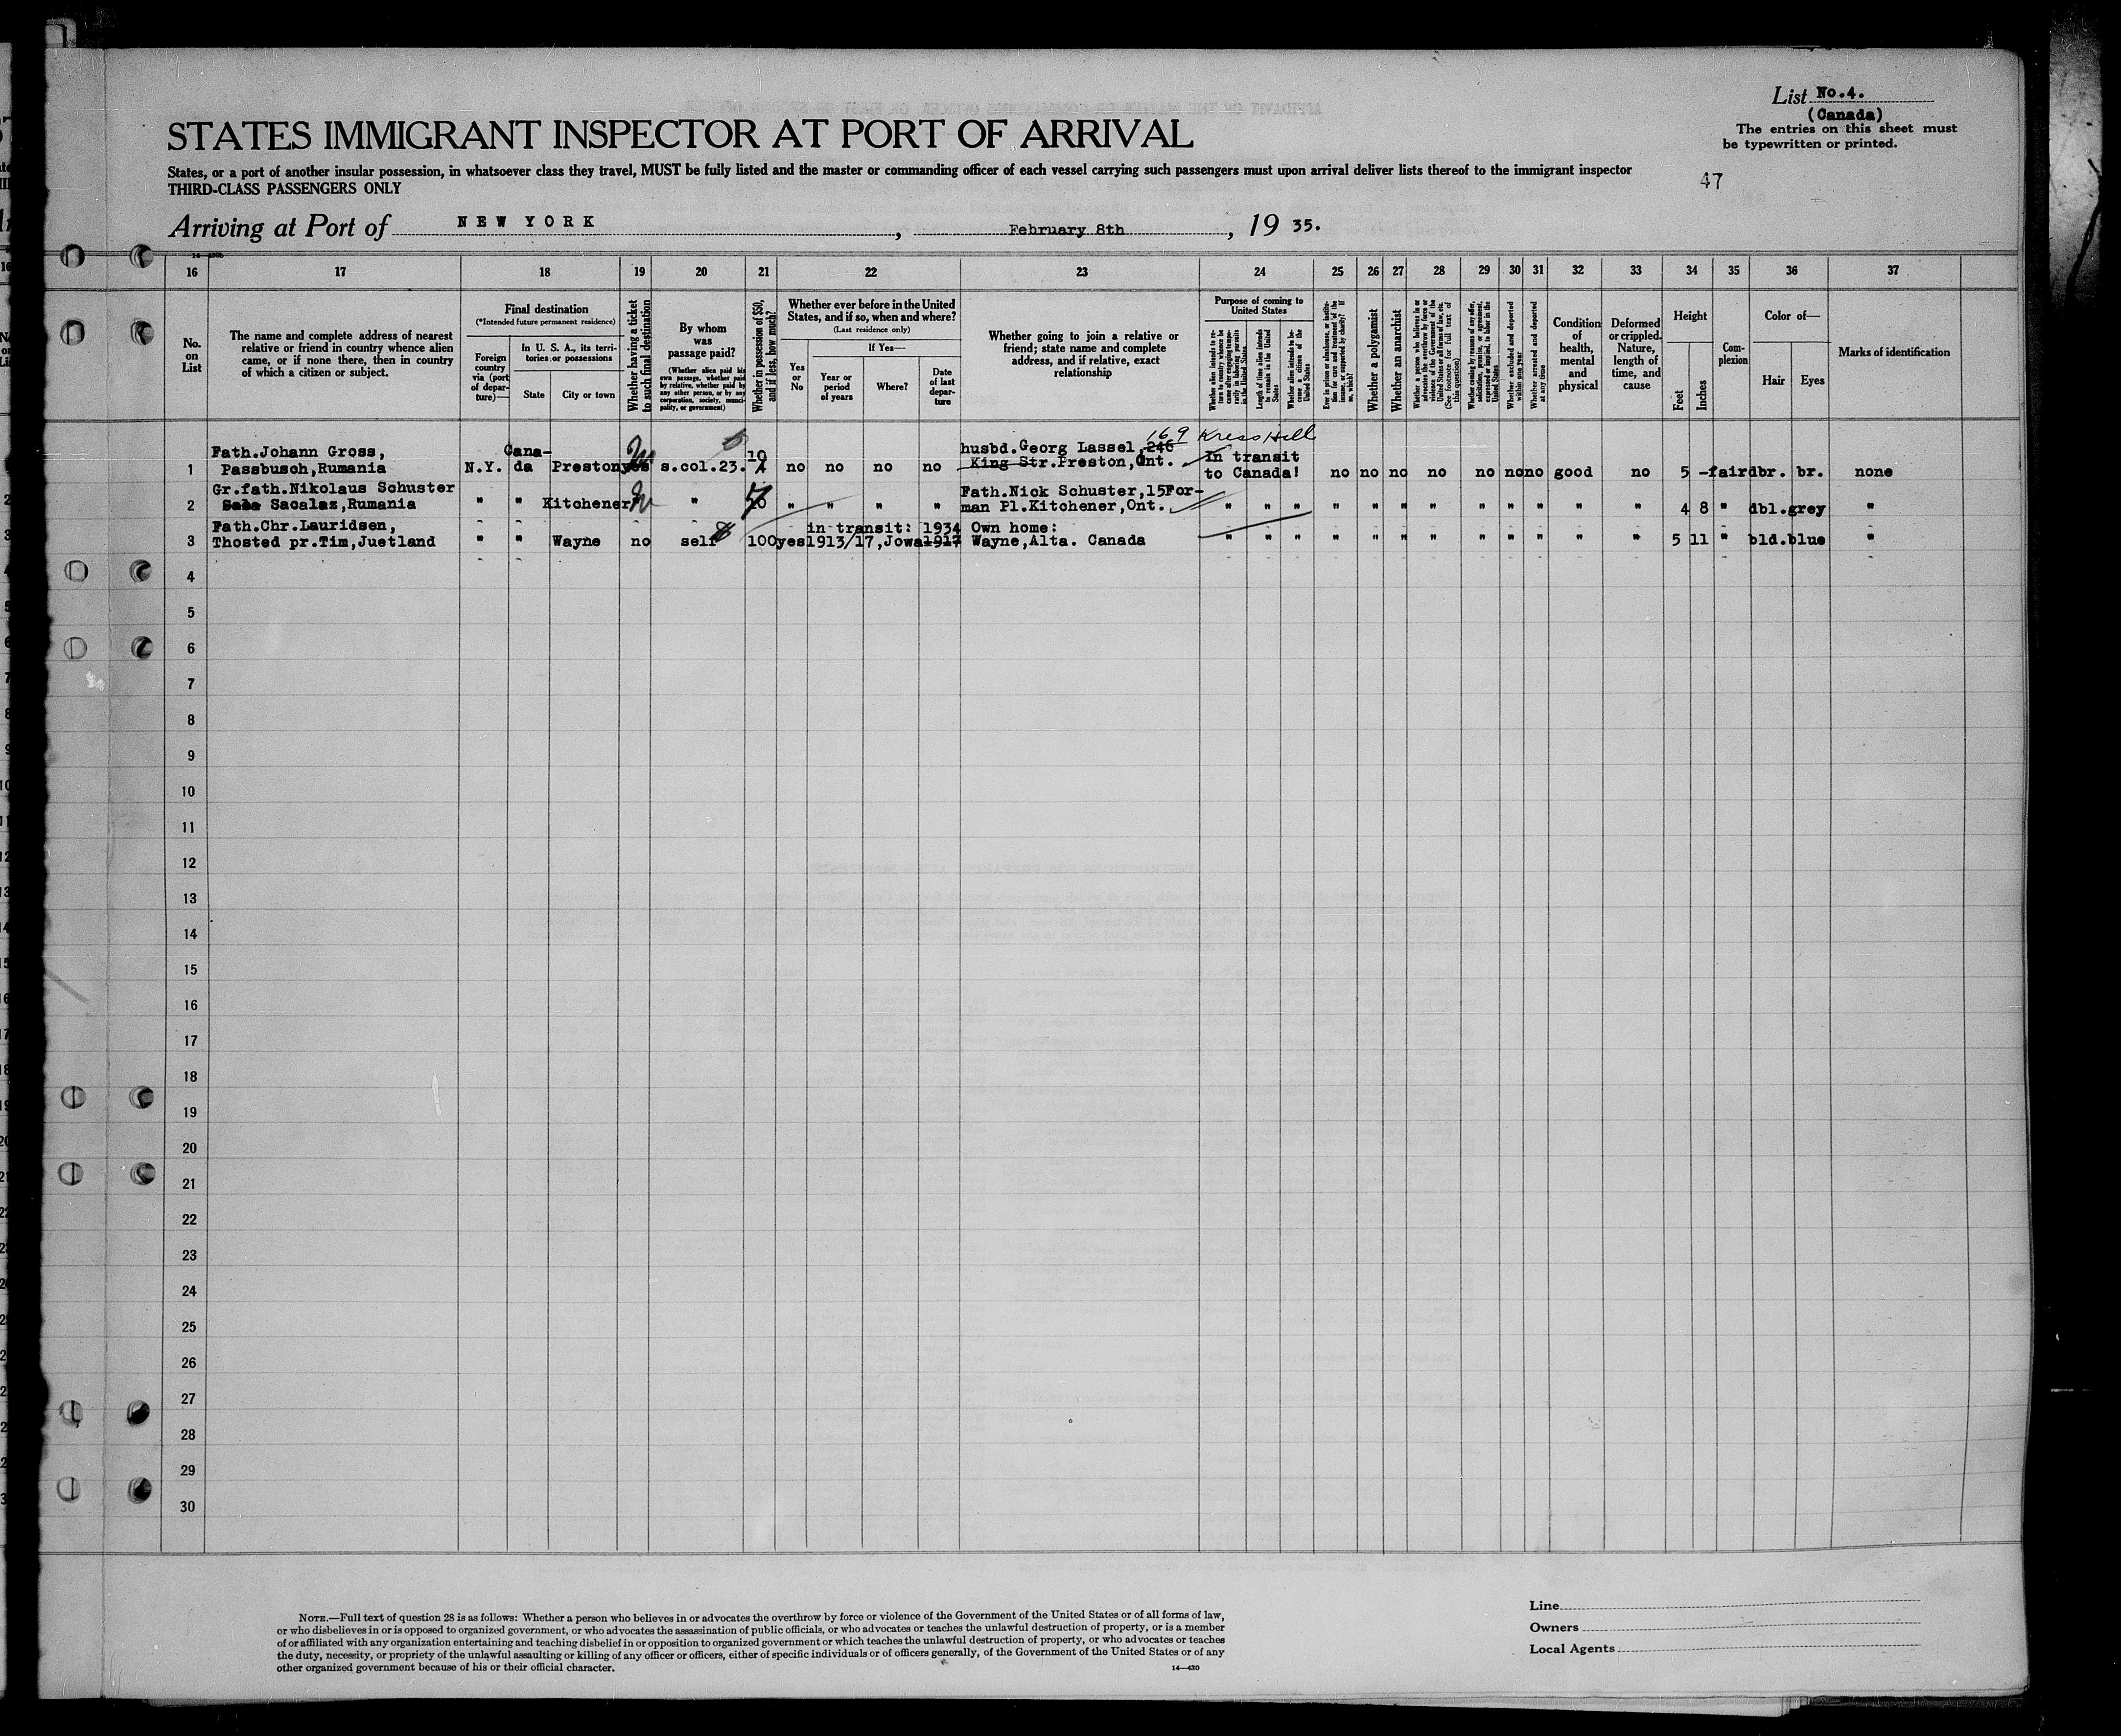 List No.4.
(Canada)
The entries on this sheet must
be typewritten or printed.
47
STATES IMMIGRANT INSPECTOR AT PORT OF ARRIVAL
States, or a port of another insular possession, in whatsoever class they travel, MUST be fully listed and the master or commanding officer of each vessel carrying such passengers must upon arrival deliver lists thereof to the immigrant inspector
THIRD-CLASS PASSENGERS ONLY
Arriving at Port of NEW YORK, February 8th, 19 35.
16 17 18 19 20 21 22 23 24 25 26 27 28 29 30 31 32 33 34 35 36 37
No. on List
The name and complete address of nearest
relative or friend in country whence alien
came, or if none there, then in country
of which a citizen or subject.
Final destination
(*Intended future permanent residence)
Foreign country via (port of departure)—
In U. S. A., its territories or possessions
State
City or town
Whether having a ticket to such final destination
By whom was passage paid?
(Whether alien paid his own passage, whether paid by relative, whether paid by any other person, or by any corporation, society, municipality, or government)
Whether in possession of $50, and if less, how much?
Whether ever before in the United States, and if so, when and where?
(Last residence only)
Yes or No
If Yes—
Year or period of years
Where?
Date of last departure
Whether going to join a relative or
friend; state name and complete
address, and if relative, exact
relationship
Purpose of coming to United States
Whether alien intends to return to country whence he came after engaging temporarily in laboring pursuits in the United States
Length of time alien intends to remain in the United States
Whether alien intends to become a citizen of the United States
Ever in prison or almshouse, or institution for care and treatment of the insane, or supported by charity? If so, which?
Whether a polygamist
Whether an anarchist
Whether a person who believes in or advocates the overthrow by force or violence of the Government of the United States or all forms of law, etc. (See footnote for full text of this question)
Whether coming by reason of any offer, solicitation, promise, or agreement, expressed or implied, to labor in the United States
Whether excluded and deported within one year
Whether arrested and deported at any time
Condition of health, mental and physical
Deformed or crippled. Nature, length of time, and cause
Height
Feet
Inches
Complexion
Color of—
Hair
Eyes
Marks of identification
169 Kress Hill
Fath.Johann Gross, Cana- 10 husbd.Georg Lassel, 246
1 Passbusch,Rumania N.Y. da Preston yes s.col.23. no no no no King Str.Preston,Ont. In transit to Canada! no no no no no no no good no 5 - fair dbr. br. none
Gr.fath.Nikolaus Schuster Fath.Nick Schuster,15For-
2 Sacalaz,Rumania " " Kitchener " " " " " man Pl.Kitchener,Ont. " " " " " " " " " " " " 4 8 " dbl. grey "
Fath.Chr.Lauridsen, in transit: 1934 Own home:
3 Thosted pr.Tim,Juetland " " Wayne no self 100 yes 1913/17,Jowa 1917 Wayne,Alta. Canada " " " " " " " " " " " " 5 11 " bld. blue "
4
5
6
7
8
9
10
11
12
13
14
15
16
17
18
19
20
21
22
23
24
25
26
27
28
29
30
NOTE.—Full text of question 28 is as follows: Whether a person who believes in or advocates the overthrow by force or violence of the Government of the United States or of all forms of law,
or who disbelieves in or is opposed to organized government, or who advocates the assassination of public officials, or who advocates or teaches the unlawful destruction of property, or is a member
of or affiliated with any organization entertaining and teaching disbelief in or opposition to organized government or which teaches the unlawful destruction of property, or who advocates or teaches
the duty, necessity, or propriety of the unlawful assaulting or killing of any officer or officers, either of specific individuals or of officers generally, of the Government of the United States or of any
other organized government because of his or their official character.
14—430
Line
Owners
Local Agents